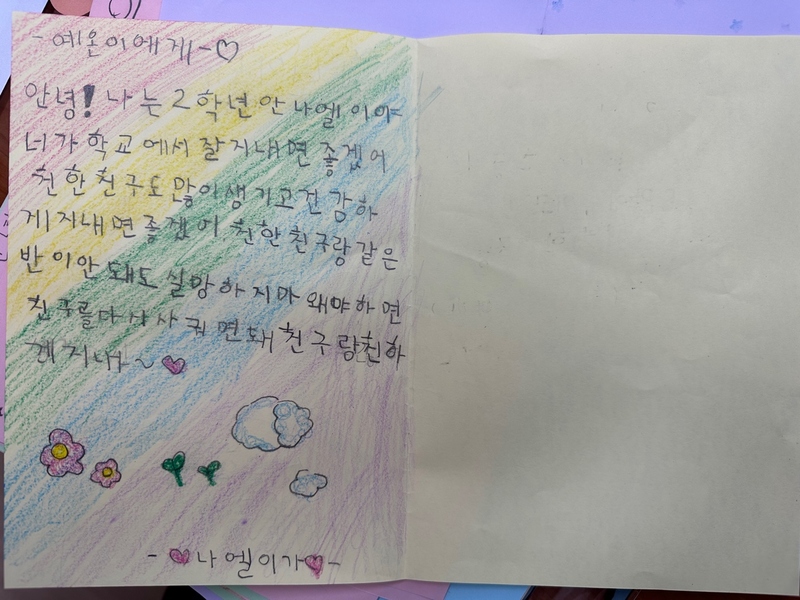 -예온이에게-♡
안녕! 나는 2학년 안나엘이야
너가 학교에서 잘지내면 좋겠어
친한친구도 많이생기고건강하
게지내면좋겠어 친한친구랑같은
반이안돼도 실망하지마 왜야하면
친구를다시사궈면돼 친구랑친하
게지내~♥
-♥나엘이가♥-